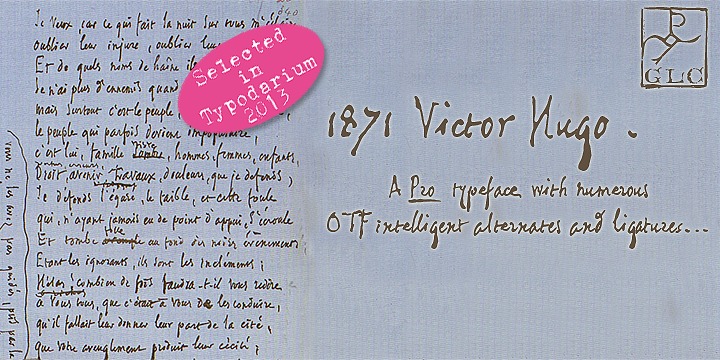 Je veux, car ce qui fait la nuit sur tous
oublier leur injure, oublier
Et de quels noms de haine
Je n'ai plus d'ennemis quand
mais surtout c'est le peuple,
le peuple qui parfois devient impopulaire,
c'est lui, famille triste, hommes, femmes, enfants,
Droit, avenir, travaux, douleurs, que je défends;
Je défends l'égaré, le faible, et cette foule
qui, n'ayant jamais eu de point d'appui, s'écroule
Et tombe folle au fond des noirs événements
Etant les ignorants, ils sont les incléments;
Hélas! combien de fois faudra-t-il vous redire
à vous tous, que c'était à vous de les conduire,
qu'il fallait leur donner leur part de la cité,
que votre aveuglement produit leur cécité;
vous ne les avez pas guidés, pris par la
Selected
in
Typodarium
2013
GLC
1871 Victor Hugo.
A Pro typeface with numerous
OTF intelligent alternates and ligatures...